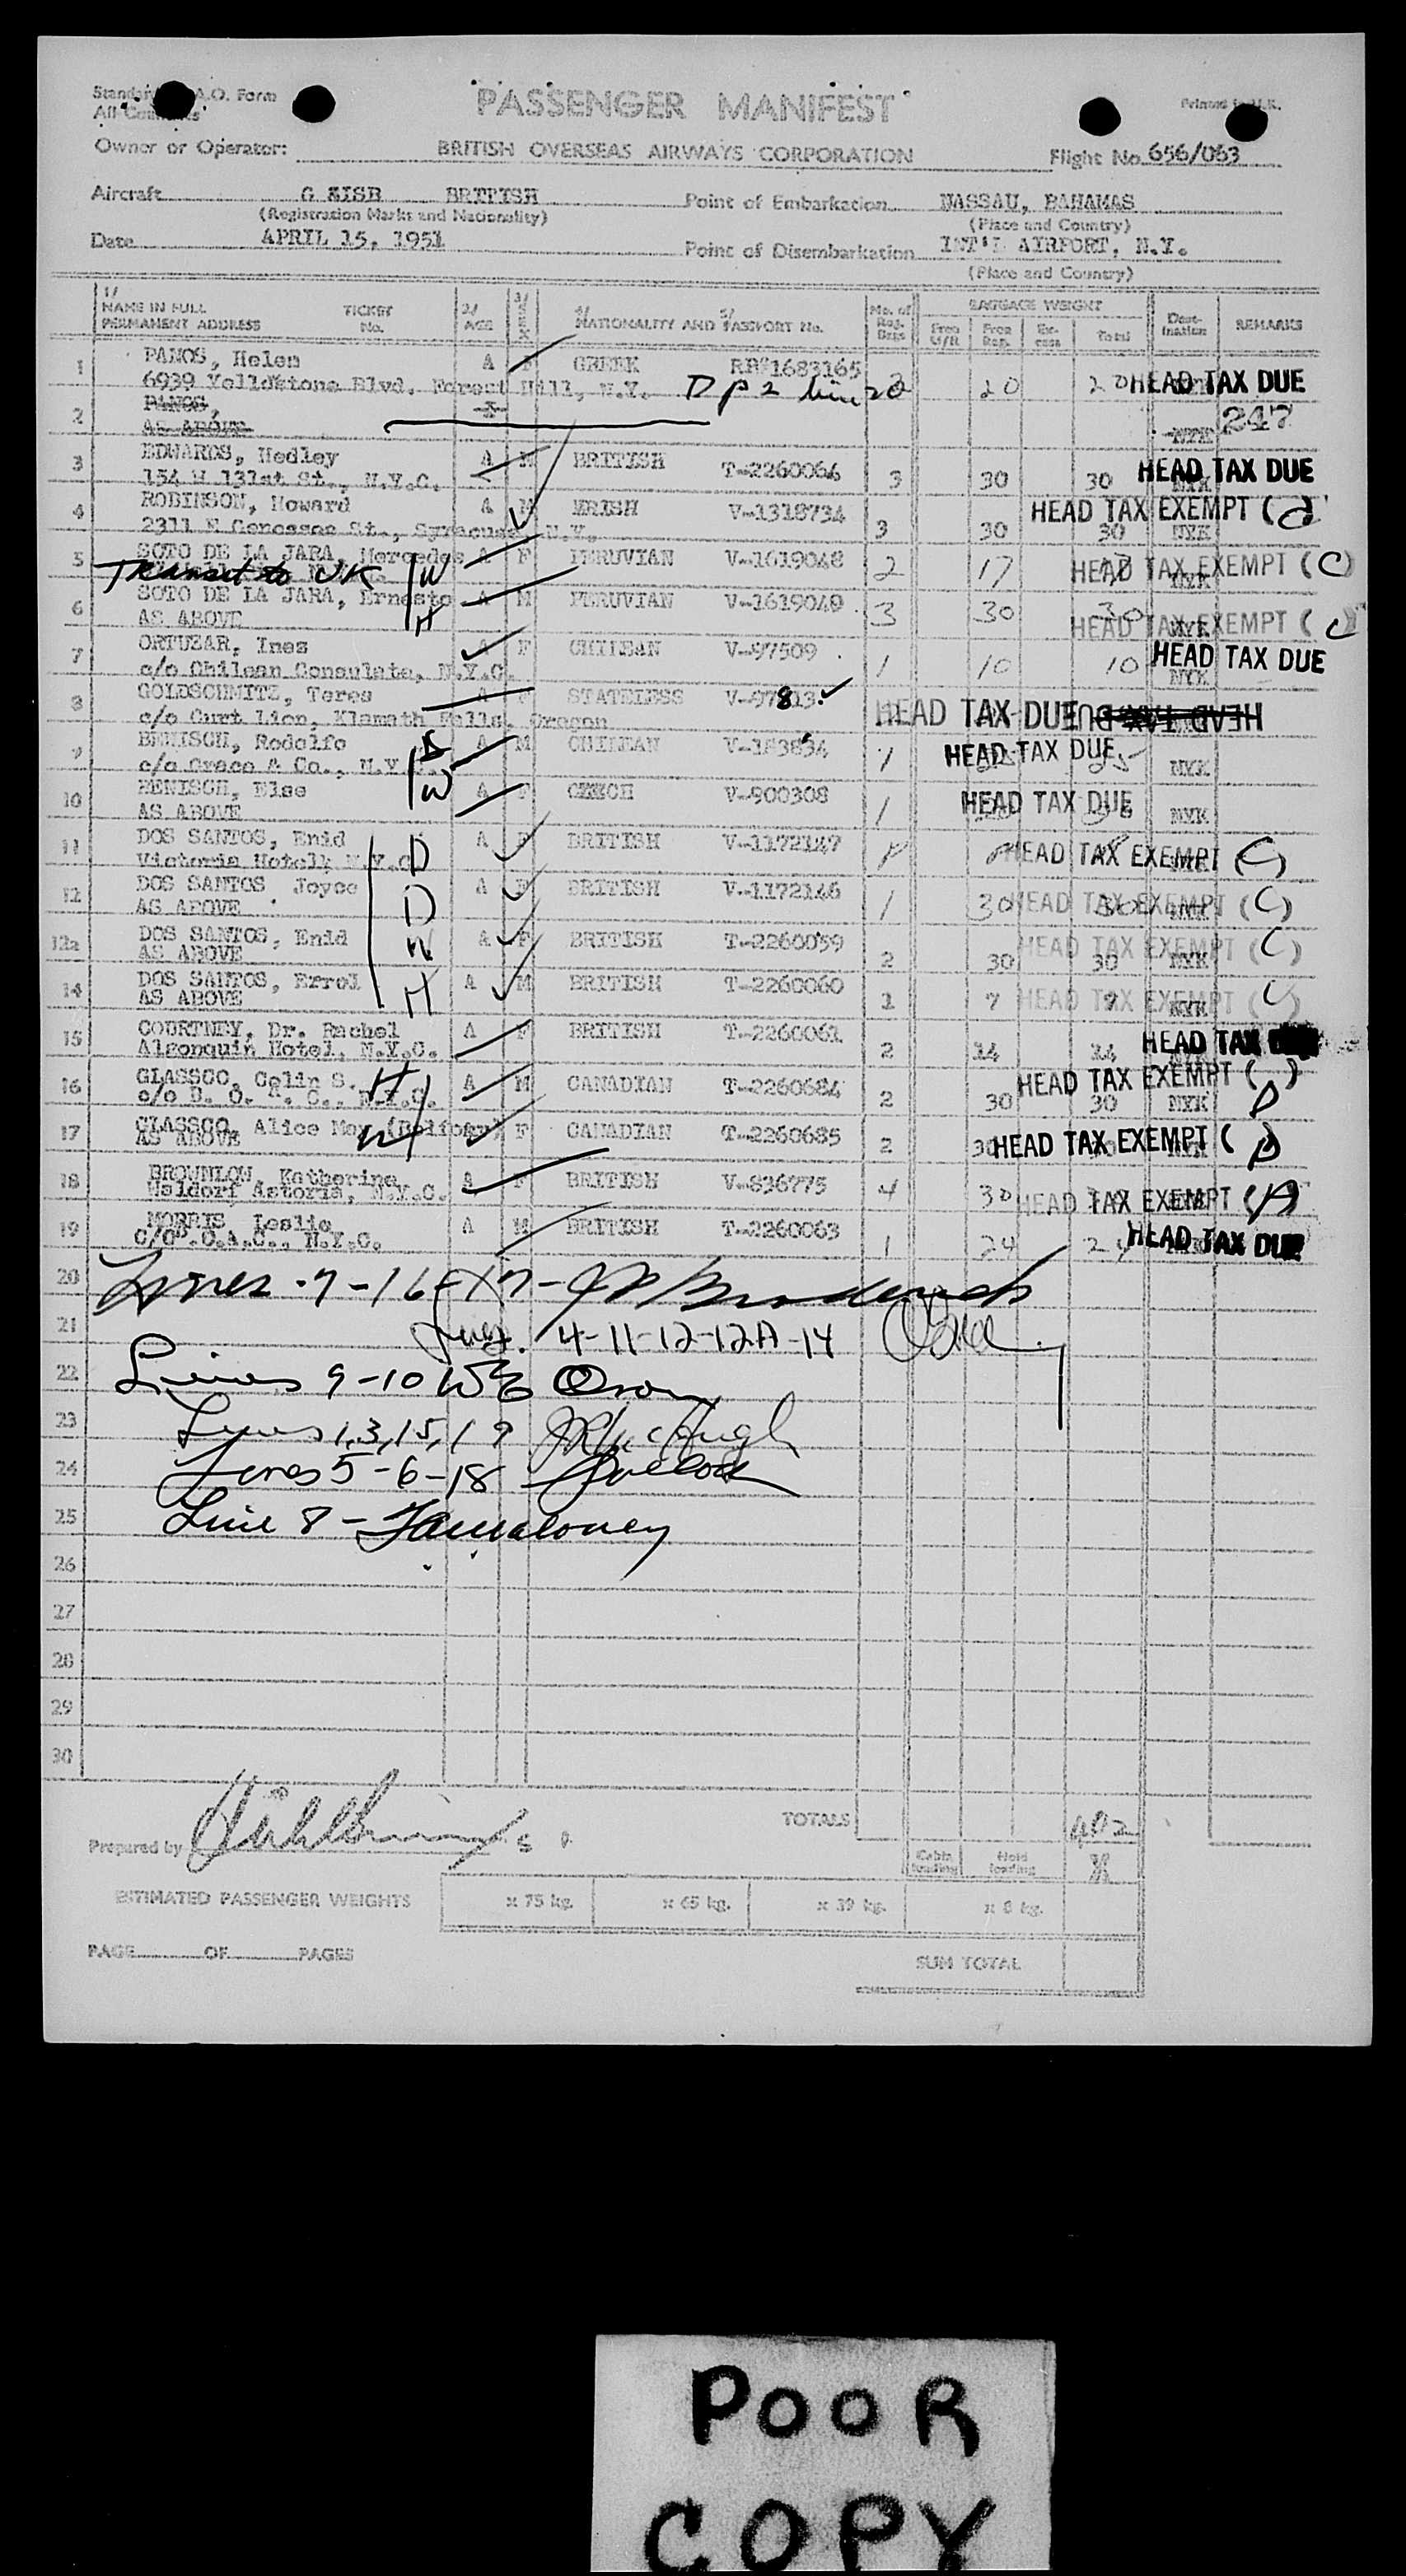 PASSENGER MANIFEST
Owner or Operator: BRITISH OVERSEAS AIRWAYS CORPORATION Flight No. 656/063
Aircraft BRITISH Point of Embarkation NASSAU, BAHAMAS
(Registration Marks and Nationality) (Place and Country)
Date APRIL 15, 1951 Point of Disembarkation INT'L AIRPORT, N.Y.
(Place and Country)
1/ NAME IN FULL PERMANENT ADDRESS TICKET No. 2/ AGE 3/ SEX 4/ NATIONALITY AND 5/ PASSPORT No. No. of BAGGAGE WEIGHT Total Destination REMARKS
1 PANOS, Helen A F GREEK 1683165
6939 Blvd. Forest Hill, N.Y. 20 20 HEAD TAX DUE
2 PANOS, 247
AS ABOVE NYK
3 EDWARDS, Hedley A M BRITISH T-2260064
154 W 131st St., N.Y.C. 3 30 30 HEAD TAX DUE
4 ROBINSON, Howard A M V-1318734 HEAD TAX EXEMPT
2311 Genessee St., Syracuse N.Y. 3 30 30 NYK
5 SOTO DE LA JARA, Mercedes W A F PERUVIAN V-1619048 2 17 HEAD TAX EXEMPT (C)
Transit to UK
6 SOTO DE LA JARA, Ernesto A M PERUVIAN V-1619049 3 30 30
AS ABOVE H HEAD TAX EXEMPT (C)
7 ORTUZAR, Ines A F CHILEAN V-97509
c/o Chilean Consulate, N.Y.C. 1 10 10 HEAD TAX DUE NYK
8 GOLDSCHMITZ, Teres A F STATELESS V-97813
c/o Curt Lion, Klamath Falls, Oregon HEAD TAX DUE HEAD TAX DUE
9 BENISCH, Rodolfo A M CHILEAN
c/o Grace & Co., N.Y. 1 HEAD TAX DUE NYK
10 BENISCH, Else W A F CZECH V-900308
AS ABOVE 1 HEAD TAX DUE NYK
11 DOS SANTOS, Enid A F BRITISH V-1172147
Victoria Hotel, N.Y.C. D HEAD TAX EXEMPT (C)
12 DOS SANTOS Joyce A F BRITISH V-1172146
AS ABOVE D 1 30 30 HEAD TAX EXEMPT (C)
12a DOS SANTOS, Enid A F BRITISH T-2260059 HEAD TAX EXEMPT (C)
AS ABOVE W 2 30 30 NYK
14 DOS SANTOS, Errol A M BRITISH T-2260060
AS ABOVE H 1 7 7 HEAD TAX EXEMPT (C)
15 COURTNEY, Dr. Rachel F BRITISH T-2260061
Algonquin Hotel, N.Y.C. 2 14 14 HEAD TAX
16 GLASSCO, Colin S. H A M CANADIAN T-2260684 HEAD TAX EXEMPT ( )
c/o B. O. A. C., N.Y.C. 2 30 30 NYK D
17 GLASSCO, Alice May F CANADIAN T-2260685
AS ABOVE W 2 30 HEAD TAX EXEMPT ( ) D
18 BROWNLOW, Katherine A F BRITISH V-836775
Waldorf Astoria, N.Y.C. 4 30 HEAD TAX EXEMPT (A)
19 MORRIS Leslie A M BRITISH T-2260063
C/O B.O.A.C., N.Y.C. 1 24 24 HEAD TAX DUE
20 Lines -7-16-17-
21 4-11-12-12A-14
22 Lines 9-10
23 Lines 1,3,15,19 JR McHugh
24 Lines 5-6-18
25 Line 8 -
26
27
28
29
30
TOTALS 402
Prepared by
Cabin loading Hold loading
ESTIMATED PASSENGER WEIGHTS x 75 kg. x 65 kg. x 39 kg. x 8 kg.
PAGE OF PAGES SUM TOTAL
POOR
COPY